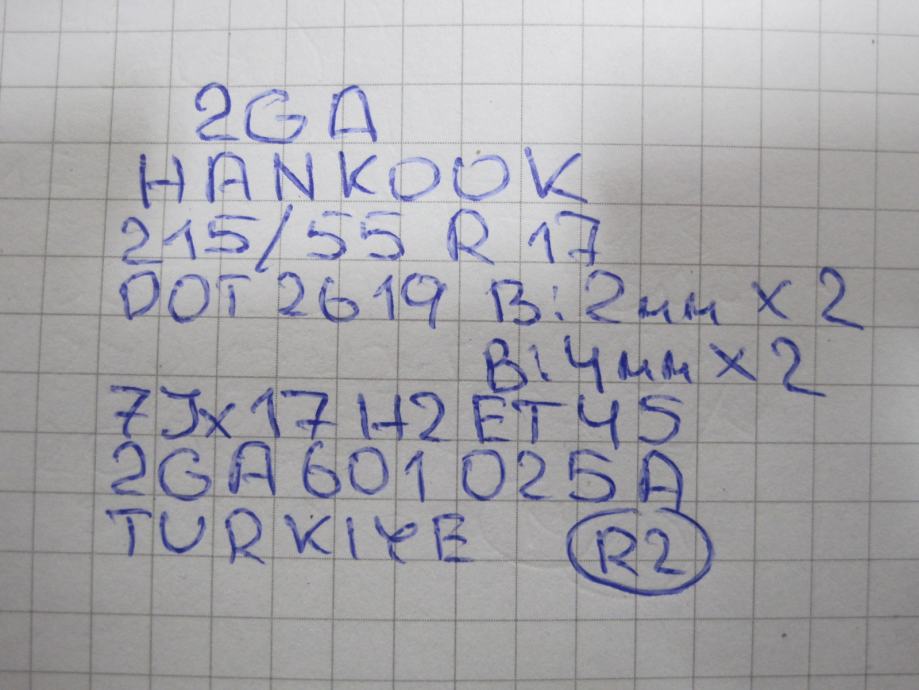 2GA
HANKOOK
215/55 R 17
DOT 2619 B:2мм x 2
B:4мм x 2
7Jx17 H2 ET45
2GA 601 025A
TURKIYE R2